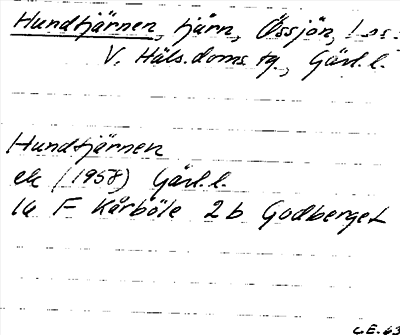 Hundtjärnen, tjärn, Össjön, Los s:n
V. Häls. doms. tg., Gävl. l.
Hundtjärnen
ek (1958) Gävl. l.
16 F Kårböle 2 b Godberget
C.E. 63